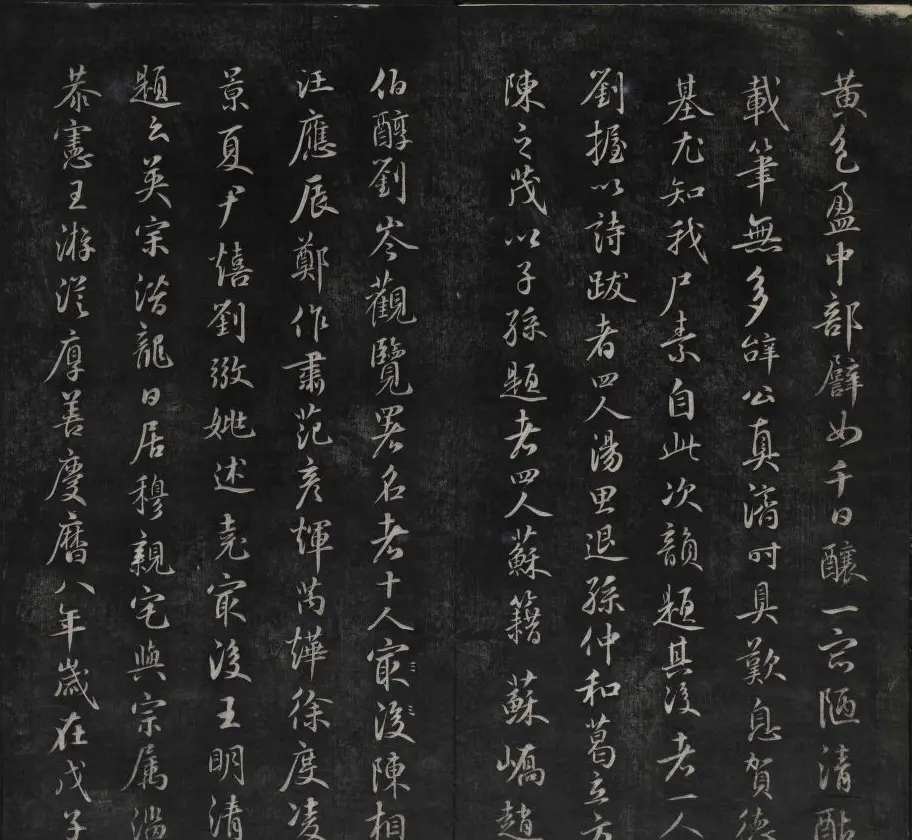 黄色盈中部譬如千日釀一啜陋清酤
載筆無多辭公真濟時具歎息賀德
基尤知我尸素自此次韻題其後者一人
劉握以詩跋者四人湯思退孫仲和葛立方
陳之茂以子孫題者四人蘇籍蘇嶠趙
伯醇劉岑觀覽署名者十人最後陳相
汪應辰鄭作肅范彥輝芮燁徐度凌
景夏尹熺劉敓姚述堯最後王明清
題云英宗潛龍日居穆親宅與宗屬濮
恭憲王游從厚善慶曆八年歲在戊子